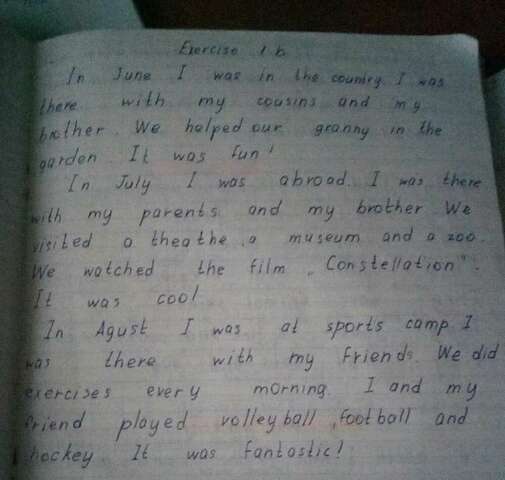 Exercise 1 b
In June I was in the country I was
there with my cousins and my
brother. We helped our granny in the
garden. It was fun!
In July I was abroad. I was there
with my parents and my brother We
visited a theathe, a museum and a zoo.
We watched the film „Constellation".
It was cool
In Agust I was at sports camp I
was there with my friends. We did
exercises every morning. I and my
friend played volleyball, football and
hockey. It was fantastic!